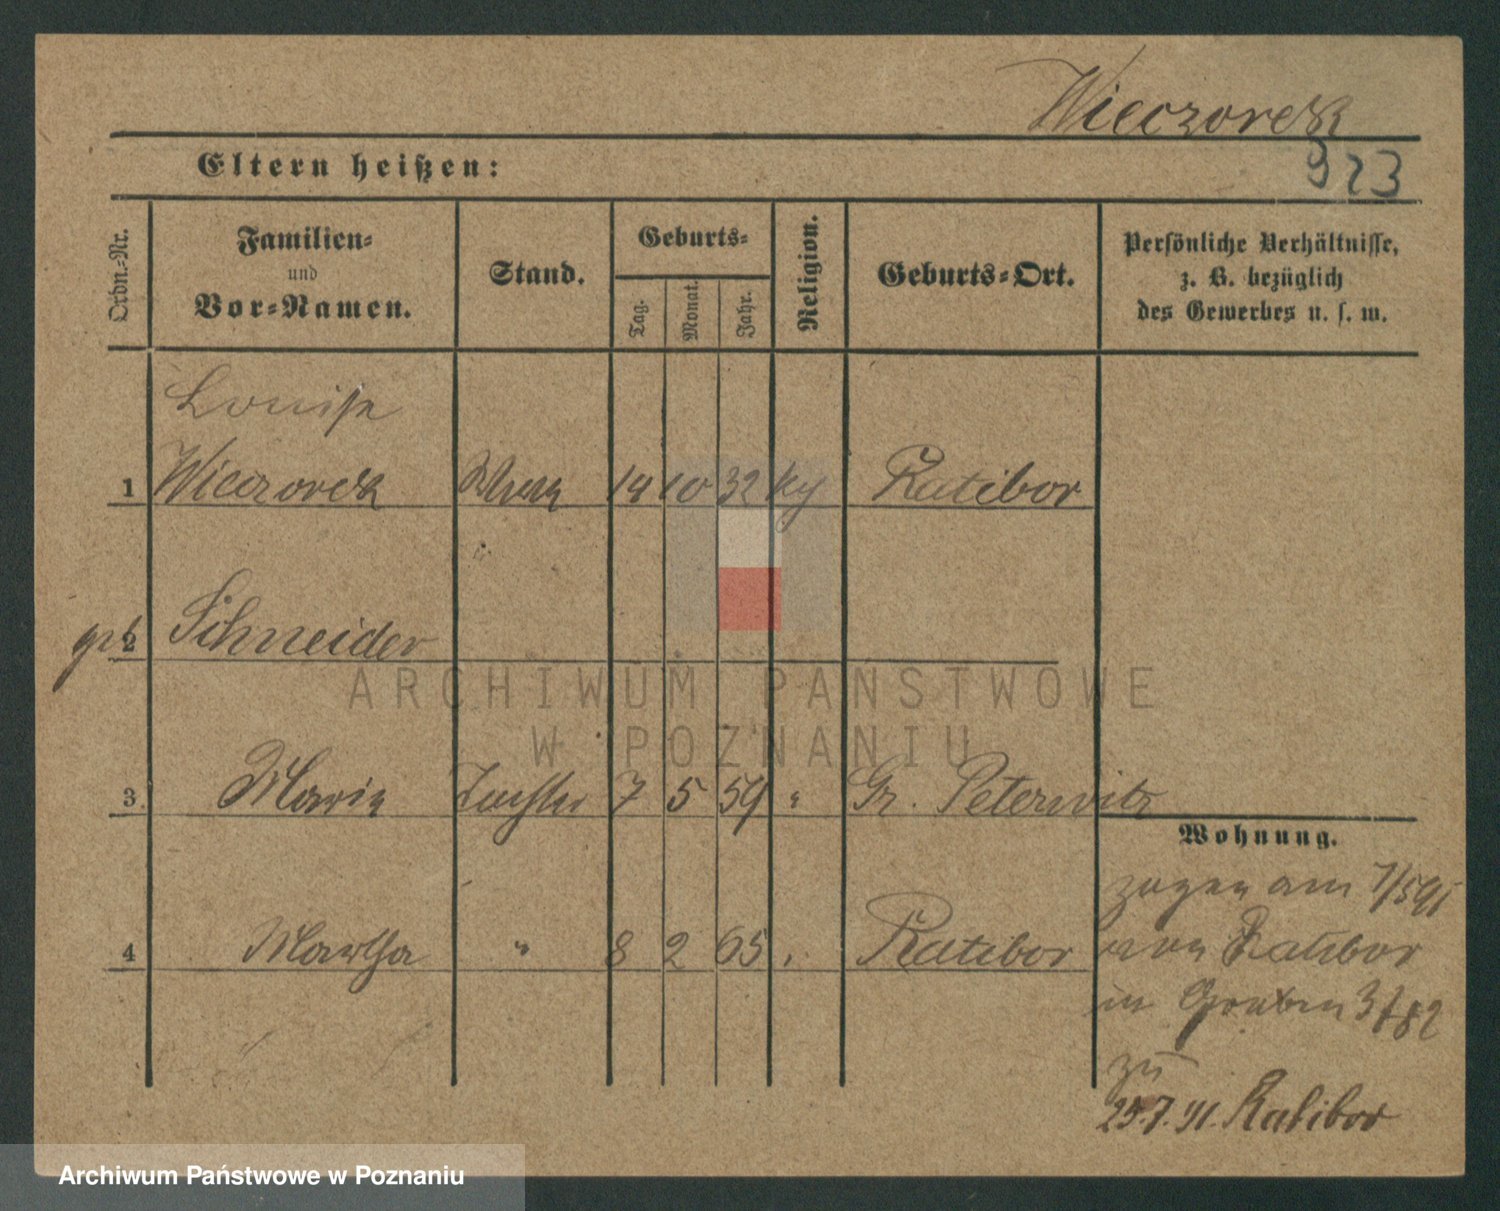 Wieczorek
Eltern heißen:
923
Ordn.-Nr.
Familien-
und
Vor-Namen.
Stand.
Geburts-
Tag.
Monat.
Jahr.
Religion.
Geburts-Ort.
Persönliche Verhältnisse,
z. B. bezüglich
des Gewerbes u. s. w.
Louise
1 Wieczorek 14 10 32 Ratibor
geb 2 Schneider
ARCHIWUM PAŃSTWOWE
W POZNANIU
3. Marie Tochter 7 5 59 " Gr. Peterwitz
Wohnung.
zogen am
4 Martha " 8 2 65 " Ratibor
von Ratibor
in Graben 3
zu
25.7.91. Ratibor
Archiwum Państwowe w Poznaniu